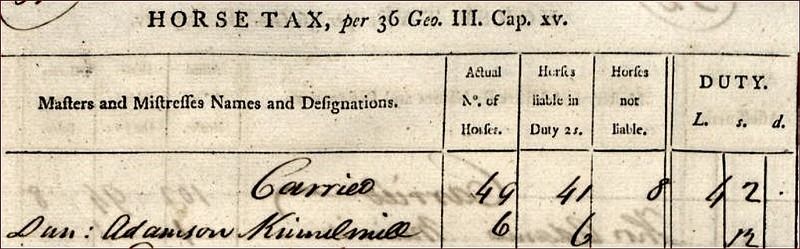 HORSE TAX, per 36 Geo. III. Cap. xv.
Maſters and Miſtreſſes Names and Deſignations. Actual No. of Horſes. Horſes liable in Duty 2s. Horſes not liable. DUTY. L. s. d.
Carried 49 41 8 4 2 .
Dan: Adamson 6 6 12